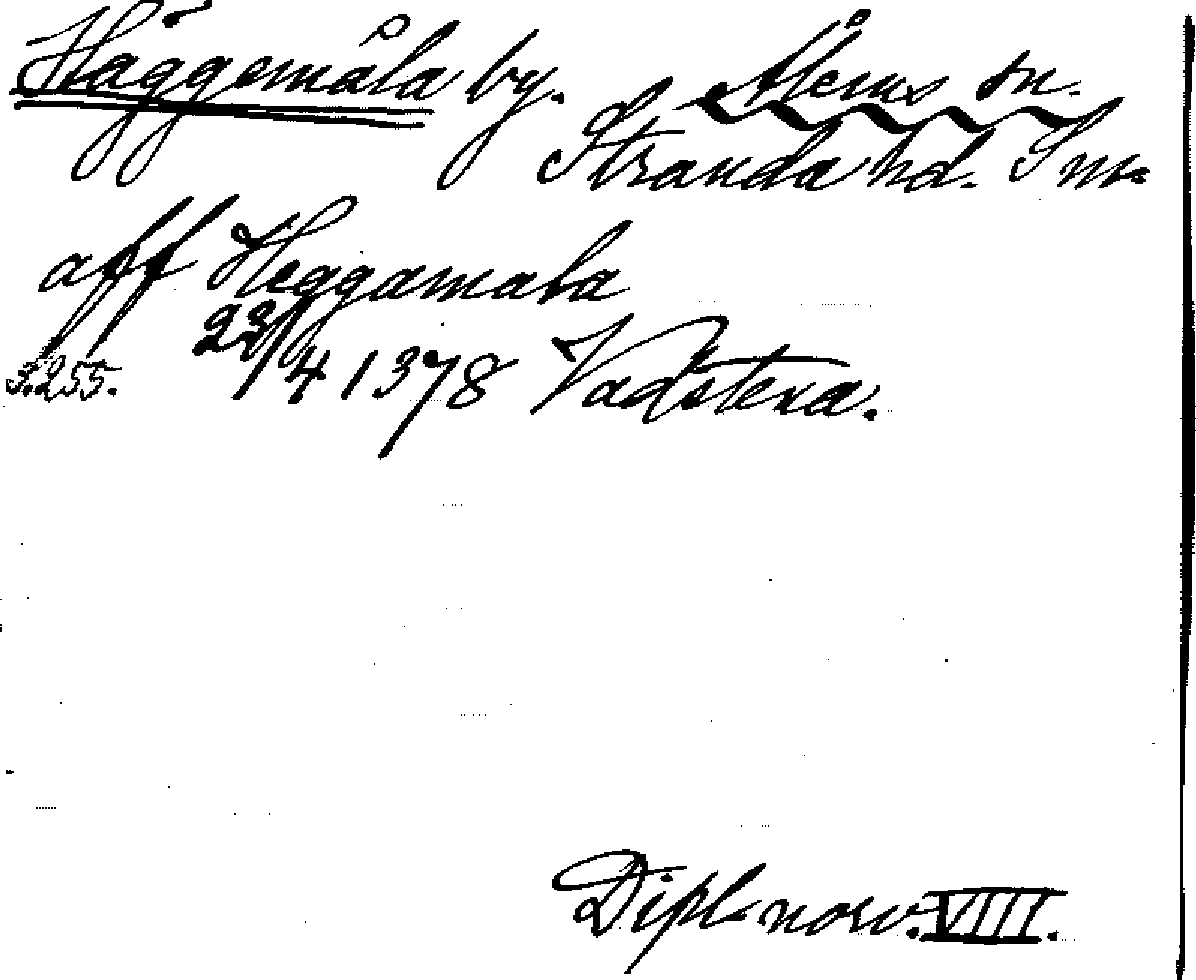 Häggemåla by. Ålems sn.
Stranda hd. Sm.
aff Heggamala
23/4 1378 Vadstena.
s. 255.
Dipl. norv. VIII.